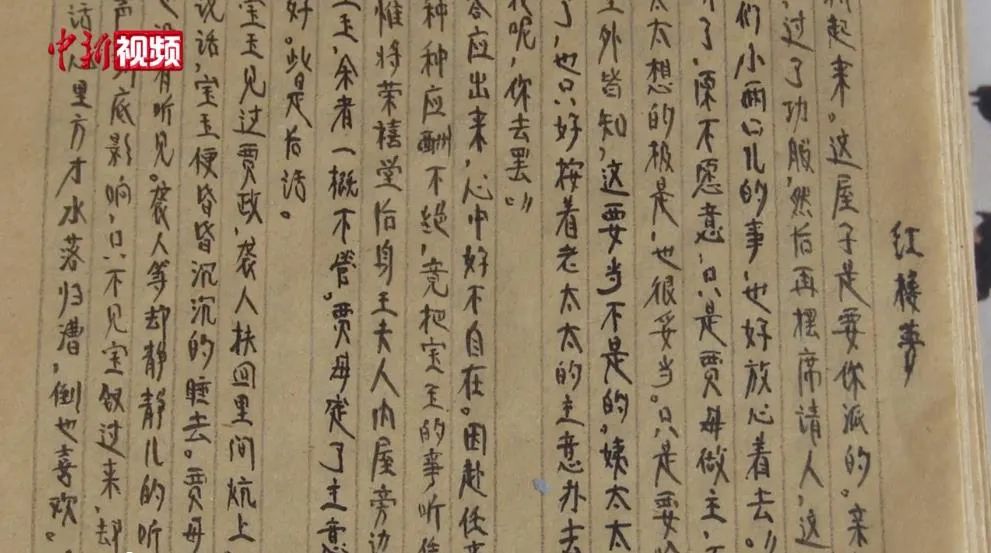 中新视频
红楼夢
起来。这屋子是要你派的。亲
过了功服,然后再摆席请人,这
们小两口儿的事,也好放心着去。”
了,原不愿意,只是贾母做主,
太太想的极是,也很妥当。只是要
外皆知,这要当不是的。姨太太
了,也只好按着老太太的主意办去
呢,你去罢。”
答应出来,心中好不自在。因赴任
种种应酬不绝,竟把宝玉的事听
惟将荣禧堂后身王夫人内屋旁边
玉,余者一概不管。贾母定了主意
好。此是后话。
宝玉见过贾政,袭人扶回里间炕上
说话,宝玉便昏昏沉沉的睡去。贾母
没有听见。袭人等却静静儿的听
声 底影响,只不见宝钗过来,却
话,心里方才水落归漕,倒也喜欢。